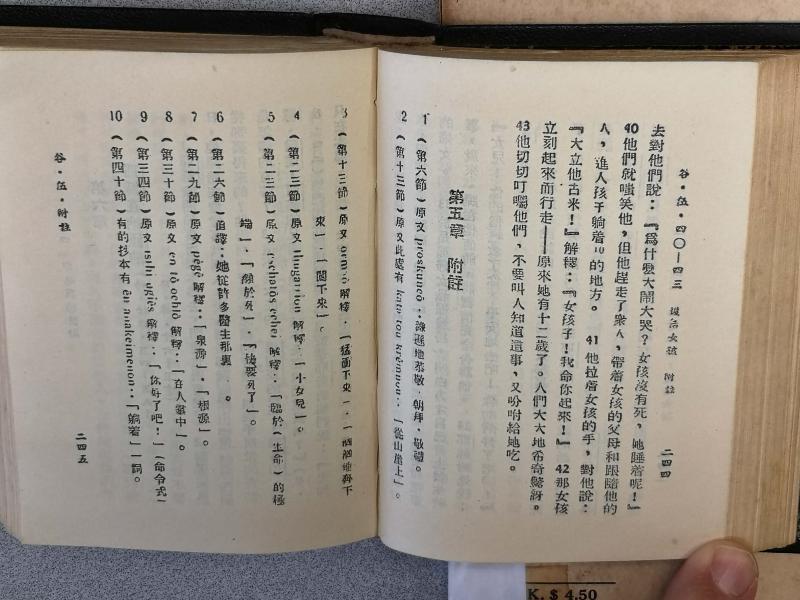 谷·伍·四〇—四三 附註 二四四
去對他們說：『為什麼大鬧大哭？女孩沒有死，她睡着呢！』
40 他們就嗤笑他，但他趕走了衆人，帶着女孩的父母和跟隨他的
人，進入孩子躺着¹⁰的地方。 41 他拉着女孩的手，對他說：
『大立他古米！』解釋：『女孩子！我命你起來！』 42 那女孩
立刻起來而行走——原來她有十二歲了。人們大大地希奇驚訝。
43 他切切叮囑他們，不要叫人知道這事，又吩咐給她吃。
第五章 附註
1 （第六節）原文 proskuneō：謙遜地恭敬．朝拜．敬禮。
2 （第十三節）原文此處有 kata tou krēmnou：「從山崖上」。
3 （第十三節）原文 解釋：「猛衝下來」．「
來」．「闖下來」。
4 （第二三節）原文 thugatrion 解釋：「小女兒」。
5 （第二三節）原文 eschatōs echei 解釋：「臨於（生命）的極
端」．「瀕於死」．「後要死了」。
6 （第二六節）直譯：她從許多醫生那裏 。
7 （第二九節）原文 pēgē 解釋：「泉源」．「根源」。
8 （第三十節）原文 en tō ochlō 解釋：「在人羣中」。
9 （第三四節）原文 isthi ugiēs 解釋：「你好了吧！」（命令式）
10 （第四十節）有的抄本有 ēn anakeimenon：「躺着」一詞。
谷·伍·附註 二四五
K. $ 4.50